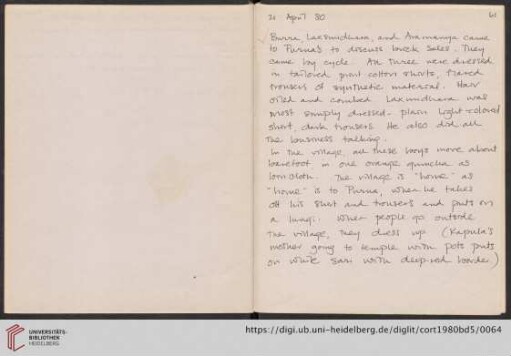 30 April 80
61
Burra Laxmidhara, and Anamanya came
to Purna's to discuss brick sales. They
came by cycle. All three were dressed
in tailored print cotton shirts, flared
trousers of synthetic material. Hair
oiled and combed Laxmidhara was
most simply dressed - plain light-colored
shirt, dark trousers. He also did all
the business talking.
In the village, all these boys move about
barefoot in one orange gumcha as
loincloth. The village is "home" as
"home" is to Purna, when he takes
off his shirt and trousers and puts on
a lungi. When people go outside
the village, they dress up (Kapula's
mother going to temple with pots puts
on white sari with deep-red border)
UNIVERSITÄTS-
BIBLIOTHEK
HEIDELBERG
https://digi.ub.uni-heidelberg.de/diglit/cort1980bd5/0064